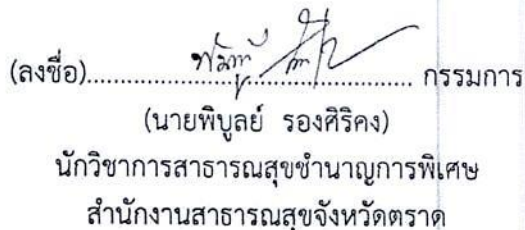 (ลงชื่อ)................................................ กรรมการ
(นายพิบูลย์ รองศิริคง)
นักวิชาการสาธารณสุขชำนาญการพิเศษ
สำนักงานสาธารณสุขจังหวัดตราด